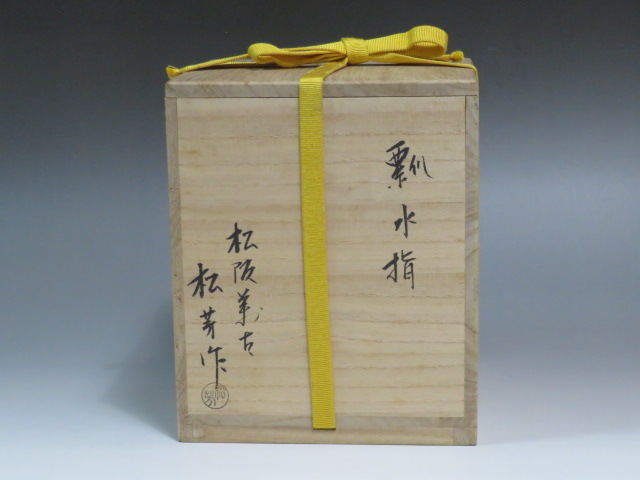 瓢水指
松阪萬古
松芳作